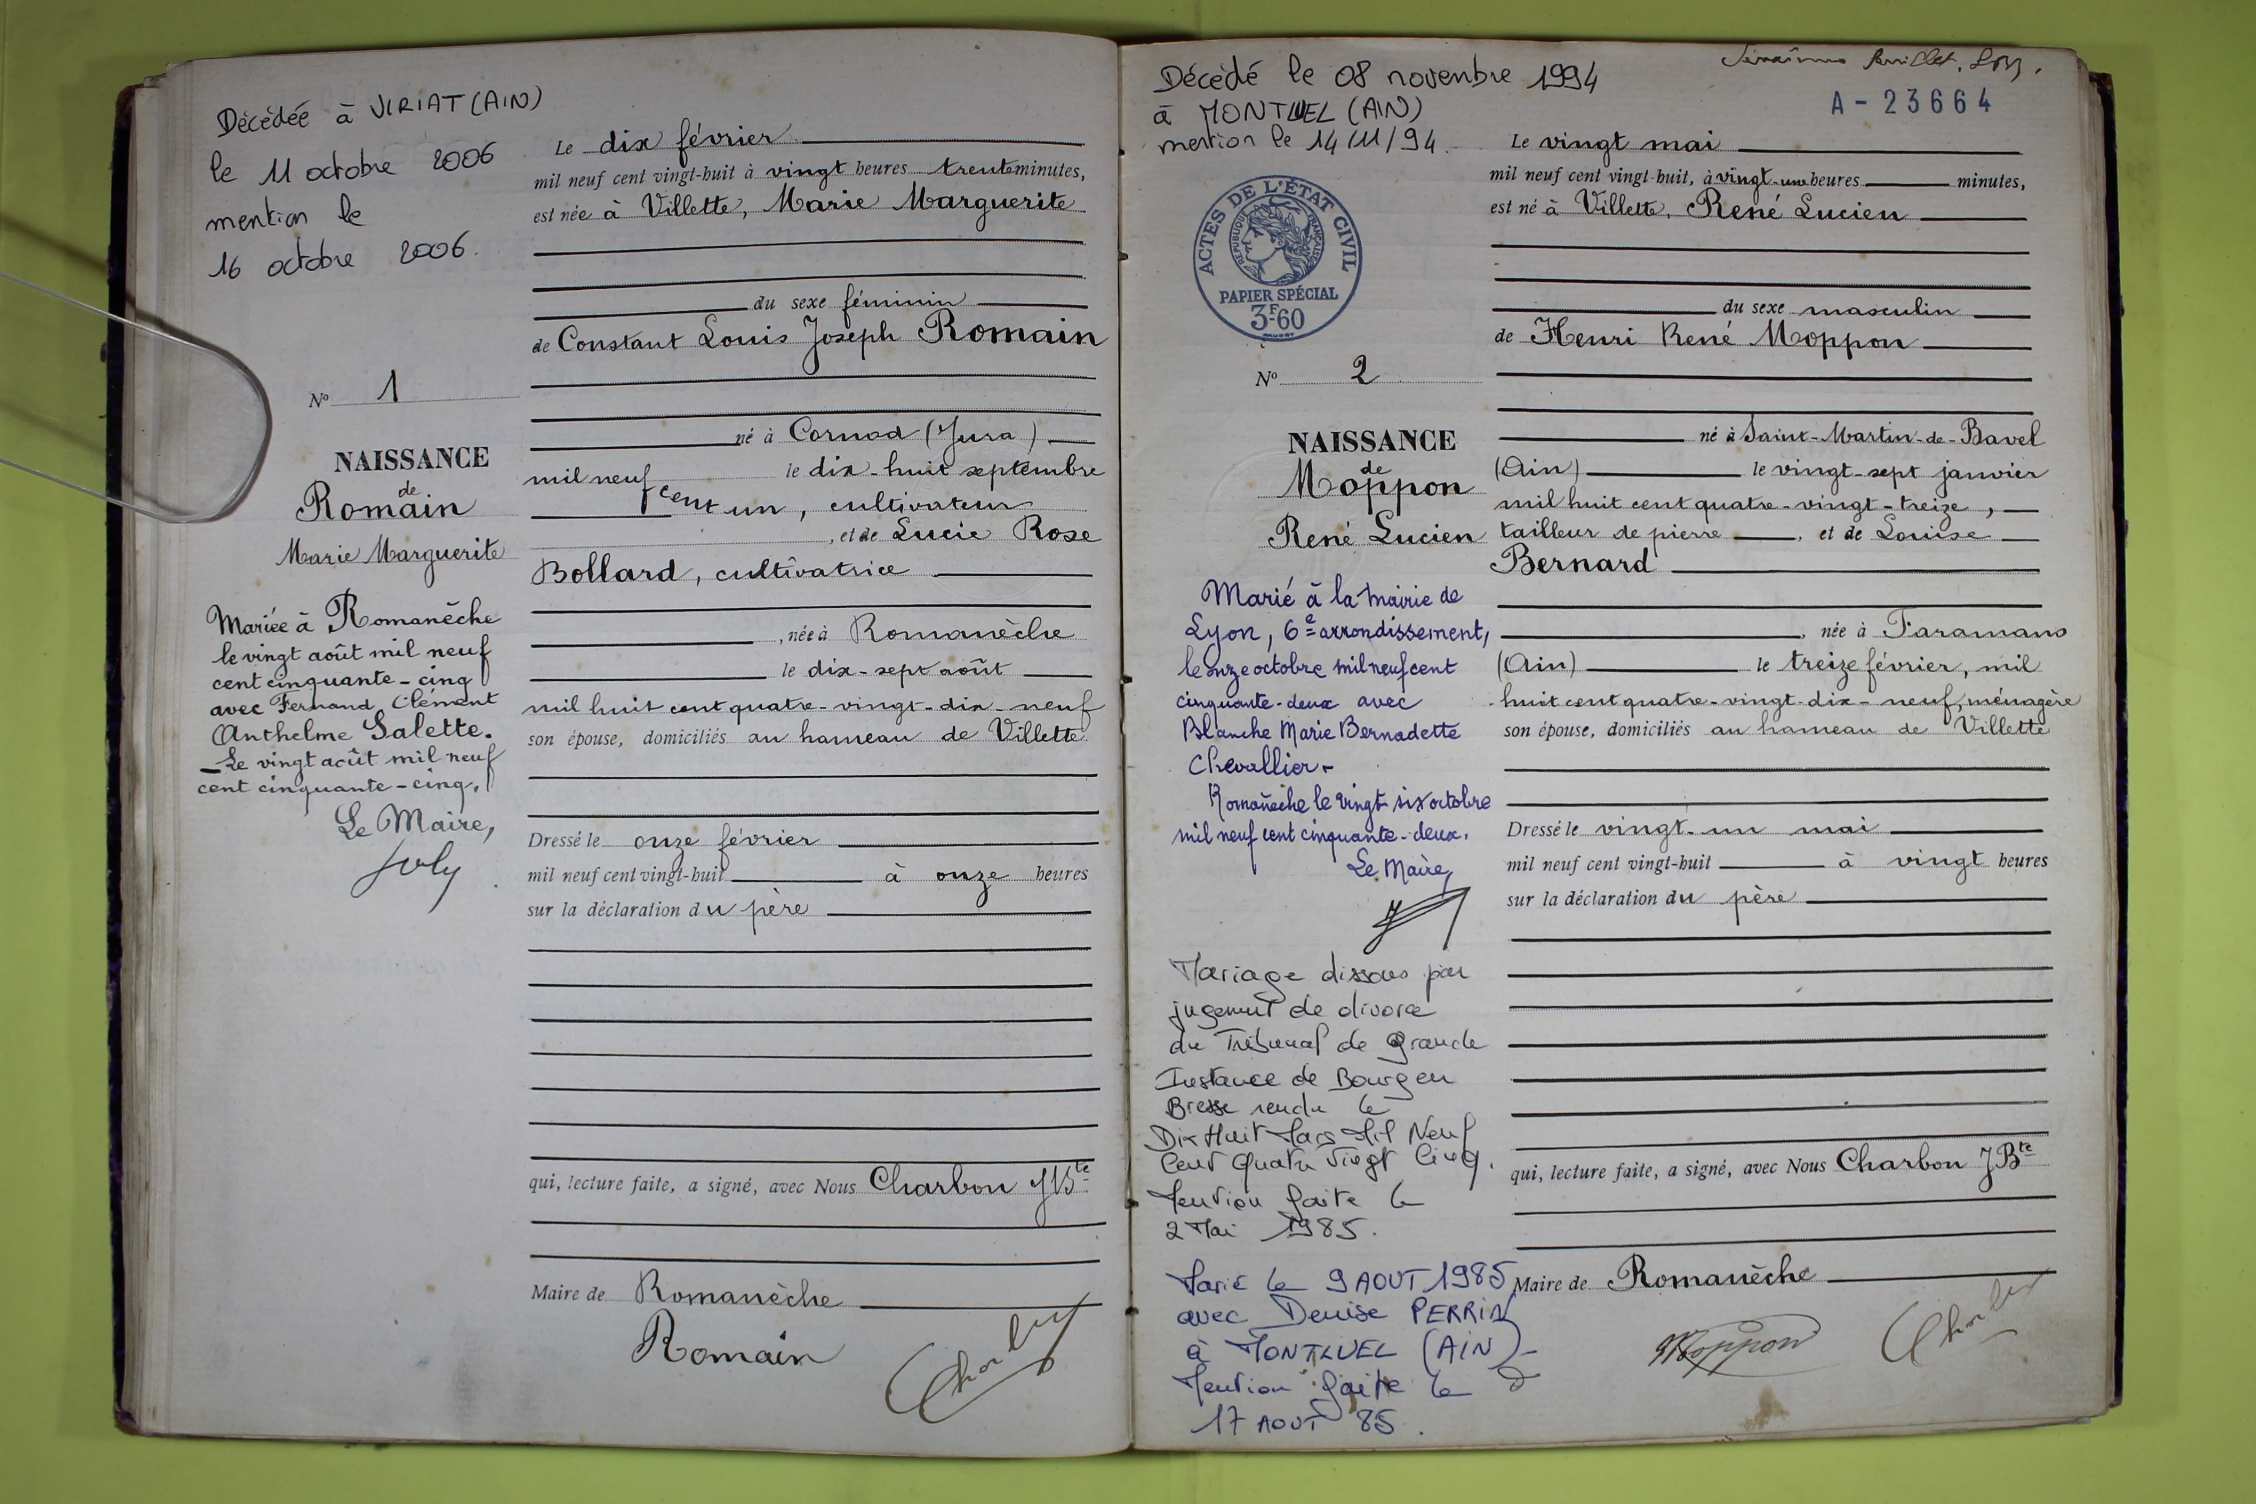 Décédée à VIRIAT (AIN)
le 11 octobre 2006
mention le
16 octobre 2006.
N° 1
NAISSANCE
de
Romain
Marie Marguerite
Mariée à Romanèche
le vingt août mil neuf
cent cinquante-cinq
avec Fernand Clément
Anthelme Salette.
_Le vingt août mil neuf
cent cinquante-cinq.
Le Maire,
Joly
Le dix février
mil neuf cent vingt-huit à vingt heures trente minutes,
est née à Villette, Marie Marguerite
du sexe féminin
de Constant Louis Joseph Romain
né à Cornod (Jura)
mil neuf le dix-huit septembre
cent un, cultivateur
, et de Lucie Rose
Bollard, cultivatrice
, née à Romanèche
le dix-sept août
mil huit cent quatre-vingt-dix-neuf
son épouse, domiciliés au hameau de Villette
Dressé le onze février
mil neuf cent vingt-huit à onze heures
sur la déclaration du père
qui, lecture faite, a signé, avec Nous Charbon JBte
Maire de Romanèche
Romain
Décédé le 08 novembre 1994
à MONTLUEL (AIN)
mention le 14/11/94.
A-23664
ACTES DE L'ÉTAT CIVIL
RÉPUBLIQUE FRANÇAISE
PAPIER SPÉCIAL
3F60
N° 2
NAISSANCE
de
Moppon
René Lucien
Marié à la mairie de
Lyon, 6e arrondissement,
le onze octobre mil neuf cent
cinquante-deux avec
Blanche Marie Bernadette
Chevallier-
Romanèche le vingt-six octobre
mil neuf cent cinquante-deux.
Le Maire,
Mariage dissous par
jugement de divorce
du Tribunal de Grande
Instance de Bourg en
Bresse rendu le
Dix Huit Mars Mil Neuf
Cent Quatre Vingt Cinq.
Mention faite le
2 Mai 1985.
Marié le 9 AOUT 1985
avec Denise PERRIN
à MONTLUEL (AIN)-
Mention faite le
17 AOUT 85.
Le vingt mai
mil neuf cent vingt-huit, à vingt-une heures minutes,
est né à Villette, René Lucien
du sexe masculin
de Henri René Moppon
né à Saint-Martin-de-Bavel
(Ain) le vingt-sept janvier
mil huit cent quatre-vingt-treize,
tailleur de pierre , et de Louise
Bernard
, née à Faramans
(Ain) le treize février, mil
huit cent quatre-vingt-dix-neuf, ménagère
son épouse, domiciliés au hameau de Villette
Dressé le vingt-un mai
mil neuf cent vingt-huit à vingt heures
sur la déclaration du père
qui, lecture faite, a signé, avec Nous Charbon JBte
Maire de Romanèche
Moppon